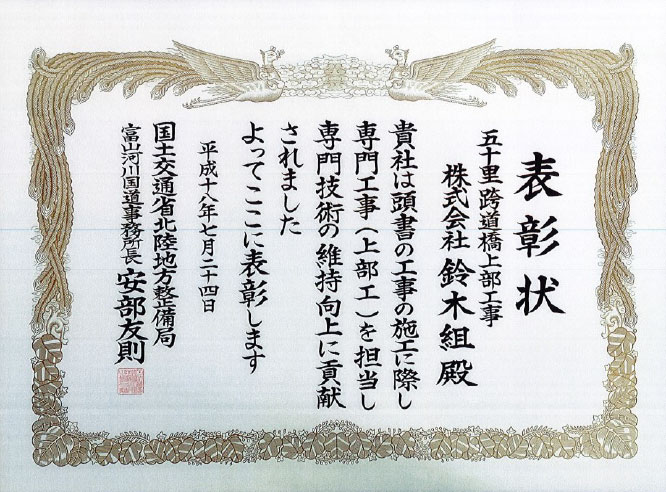 表彰状
五十里跨道橋上部工事
株式会社 鈴木組 殿
貴社は頭書の工事の施工に際し
専門工事(上部工)を担当し
専門技術の維持向上に貢献
されました
よってここに表彰します
平成十八年七月二十四日
国土交通省北陸地方整備局
富山河川国道事務所長 安部友則